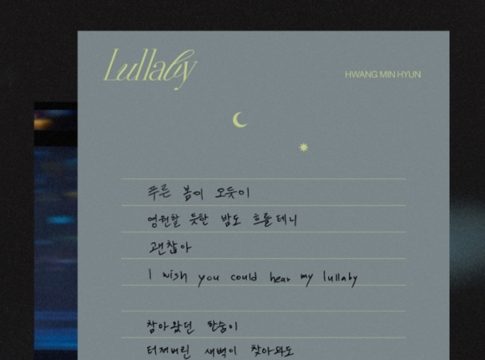 Lullaby
HWANG MIN HYUN
푸른 봄이 오듯이
영원할 듯한 밤도 흐를 테니
괜찮아
I wish you could hear my lullaby
참아왔던 한숨이
터져버린 새벽이 찾아와도